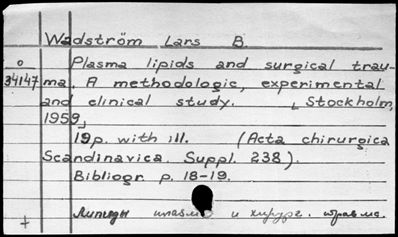 Wadström Lars B.
o Plasma lipids and surgical trau-
34147 ma. A methodologic, experimental
and clinical study. [Stockholm,
1959]
19p. with ill. (Acta chirurgica
Scandinavica. Suppl. 238).
Bibliogr p. 18-19.
+ Липиды плазмы и хирург. травма.